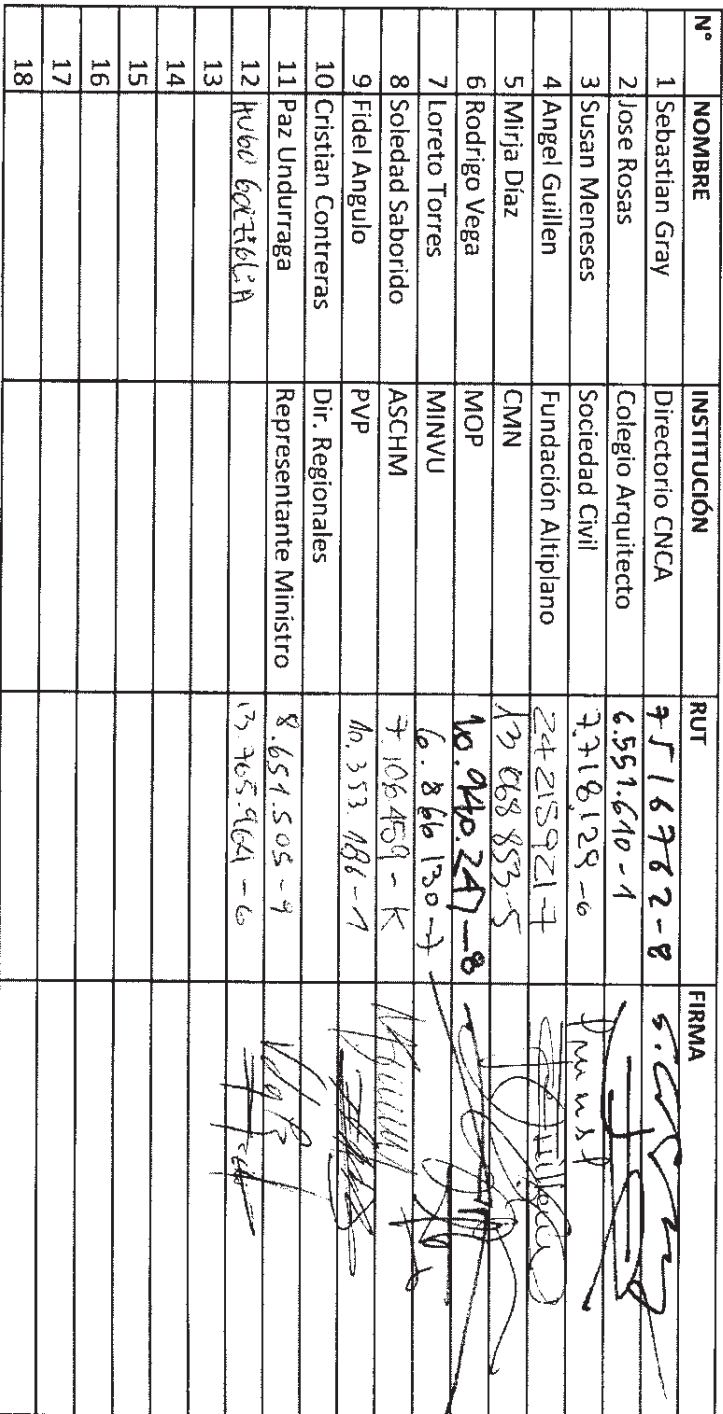 N° NOMBRE INSTITUCIÓN RUT FIRMA
1 Sebastian Gray Directorio CNCA 7516762-8
2 Jose Rosas Colegio Arquitecto 6.551.610-1
3 Susan Meneses Sociedad Civil 7.718.129-6
4 Angel Guillen Fundación Altiplano 24215921-7
5 Mirja Díaz CMN 13 068 853-5
6 Rodrigo Vega MOP 10.940.247-8
7 Loreto Torres MINVU 6.866130-7
8 Soledad Saborido ASCHM 7.106459-K
9 Fidel Angulo PVP 10.353.186-1
10 Cristian Contreras Dir. Regionales
11 Paz Undurraga Representante Ministro 8.651.505-9
12 HUGO 13.765.964-6
13
14
15
16
17
18